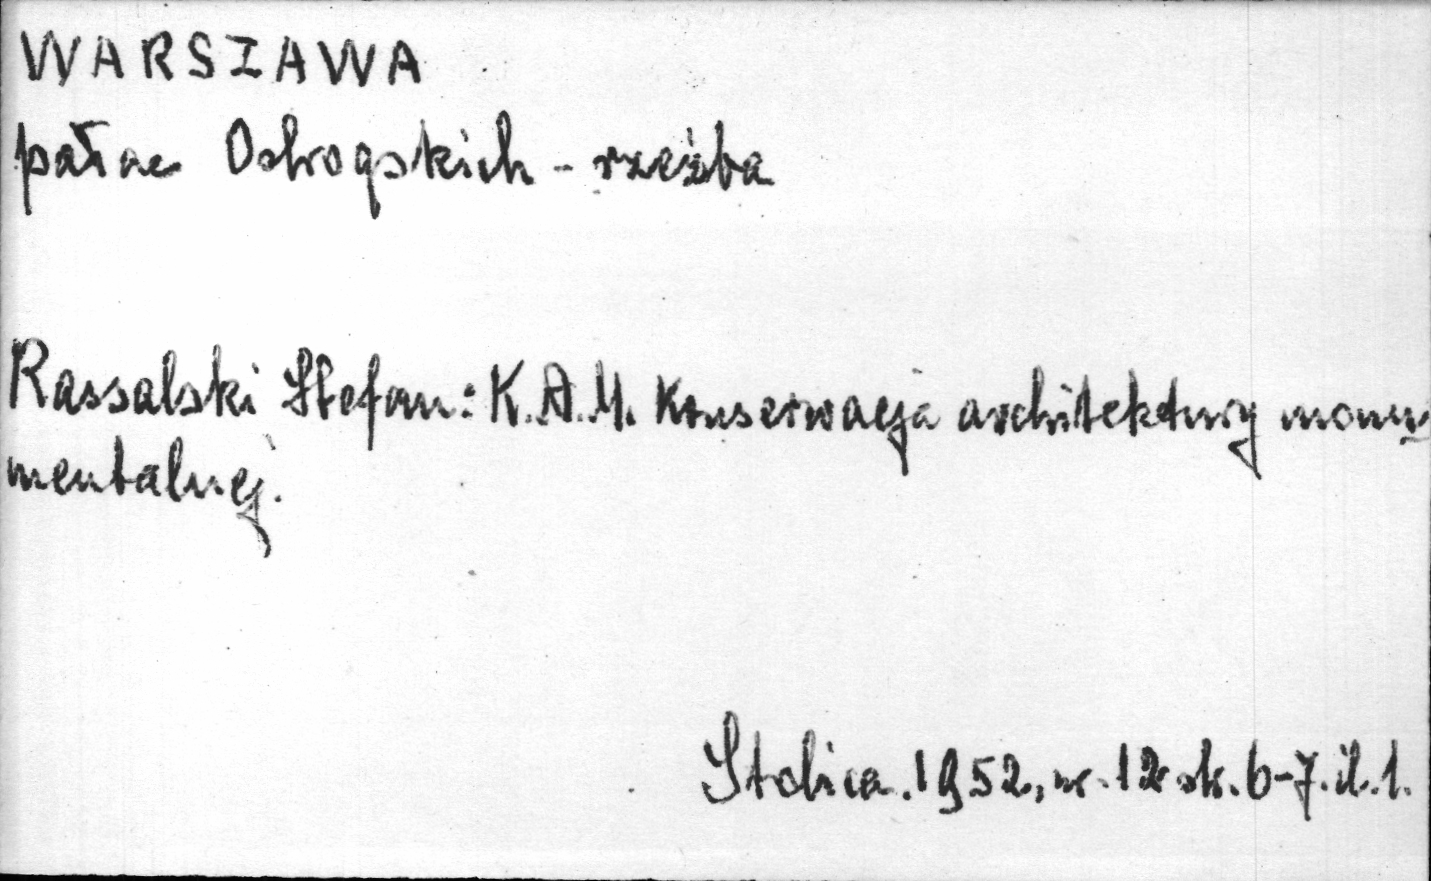 WARSZAWA
pałac Ostrogskich - rzeźba
Rassalski Stefan: K.A.M. Konserwacja architektury monu-
mentalnej.
Stolica. 1952, nr. 12 str. 6-7. il. 1.